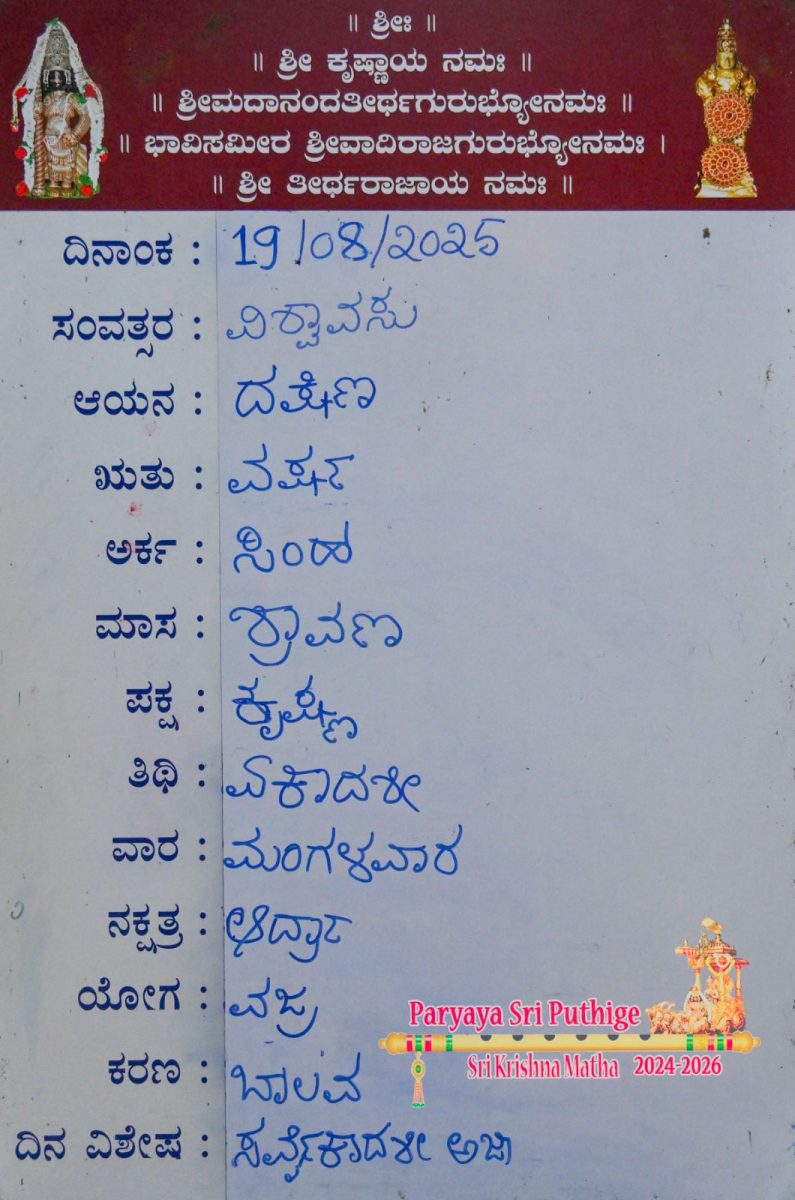 ॥ ಶ್ರೀಃ ॥
॥ ಶ್ರೀ ಕೃಷ್ಣಾಯ ನಮಃ ॥
॥ ಶ್ರೀಮದಾನಂದತೀರ್ಥಗುರುಭ್ಯೋನಮಃ ॥
॥ ಭಾವಿಸಮೀರ ಶ್ರೀವಾದಿರಾಜಗುರುಭ್ಯೋನಮಃ ।
॥ ಶ್ರೀ ತೀರ್ಥರಾಜಾಯ ನಮಃ ॥
ದಿನಾಂಕ : 19/08/2025
ಸಂವತ್ಸರ : ವಿಶ್ವಾವಸು
ಆಯನ : ದಕ್ಷಿಣ
ಋತು : ವರ್ಷ
ಅರ್ಕ : ಸಿಂಹ
ಮಾಸ : ಶ್ರಾವಣ
ಪಕ್ಷ : ಕೃಷ್ಣ
ತಿಥಿ : ಏಕಾದಶೀ
ವಾರ : ಮಂಗಳವಾರ
ನಕ್ಷತ್ರ : ಆರ್ದ್ರಾ
ಯೋಗ : ವಜ್ರ
ಕರಣ : ಬಾಲವ
ದಿನ ವಿಶೇಷ : ಸರ್ವೈಕಾದಶೀ ಅಜಾ
Paryaya Sri Puthige
Sri Krishna Matha 2024-2026